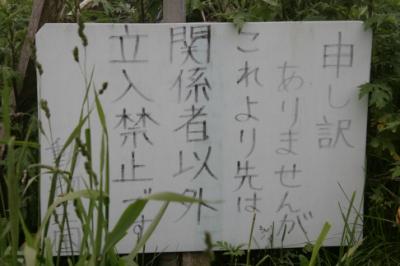 申し訳
ありませんが
これより先は
関係者以外
立入禁止です